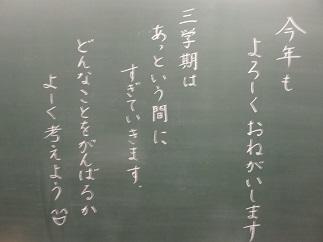 今年も
よろしくおねがいします
三学期は
あっという間に
すぎていきます.
どんなことをがんばるか
よーく考えよう